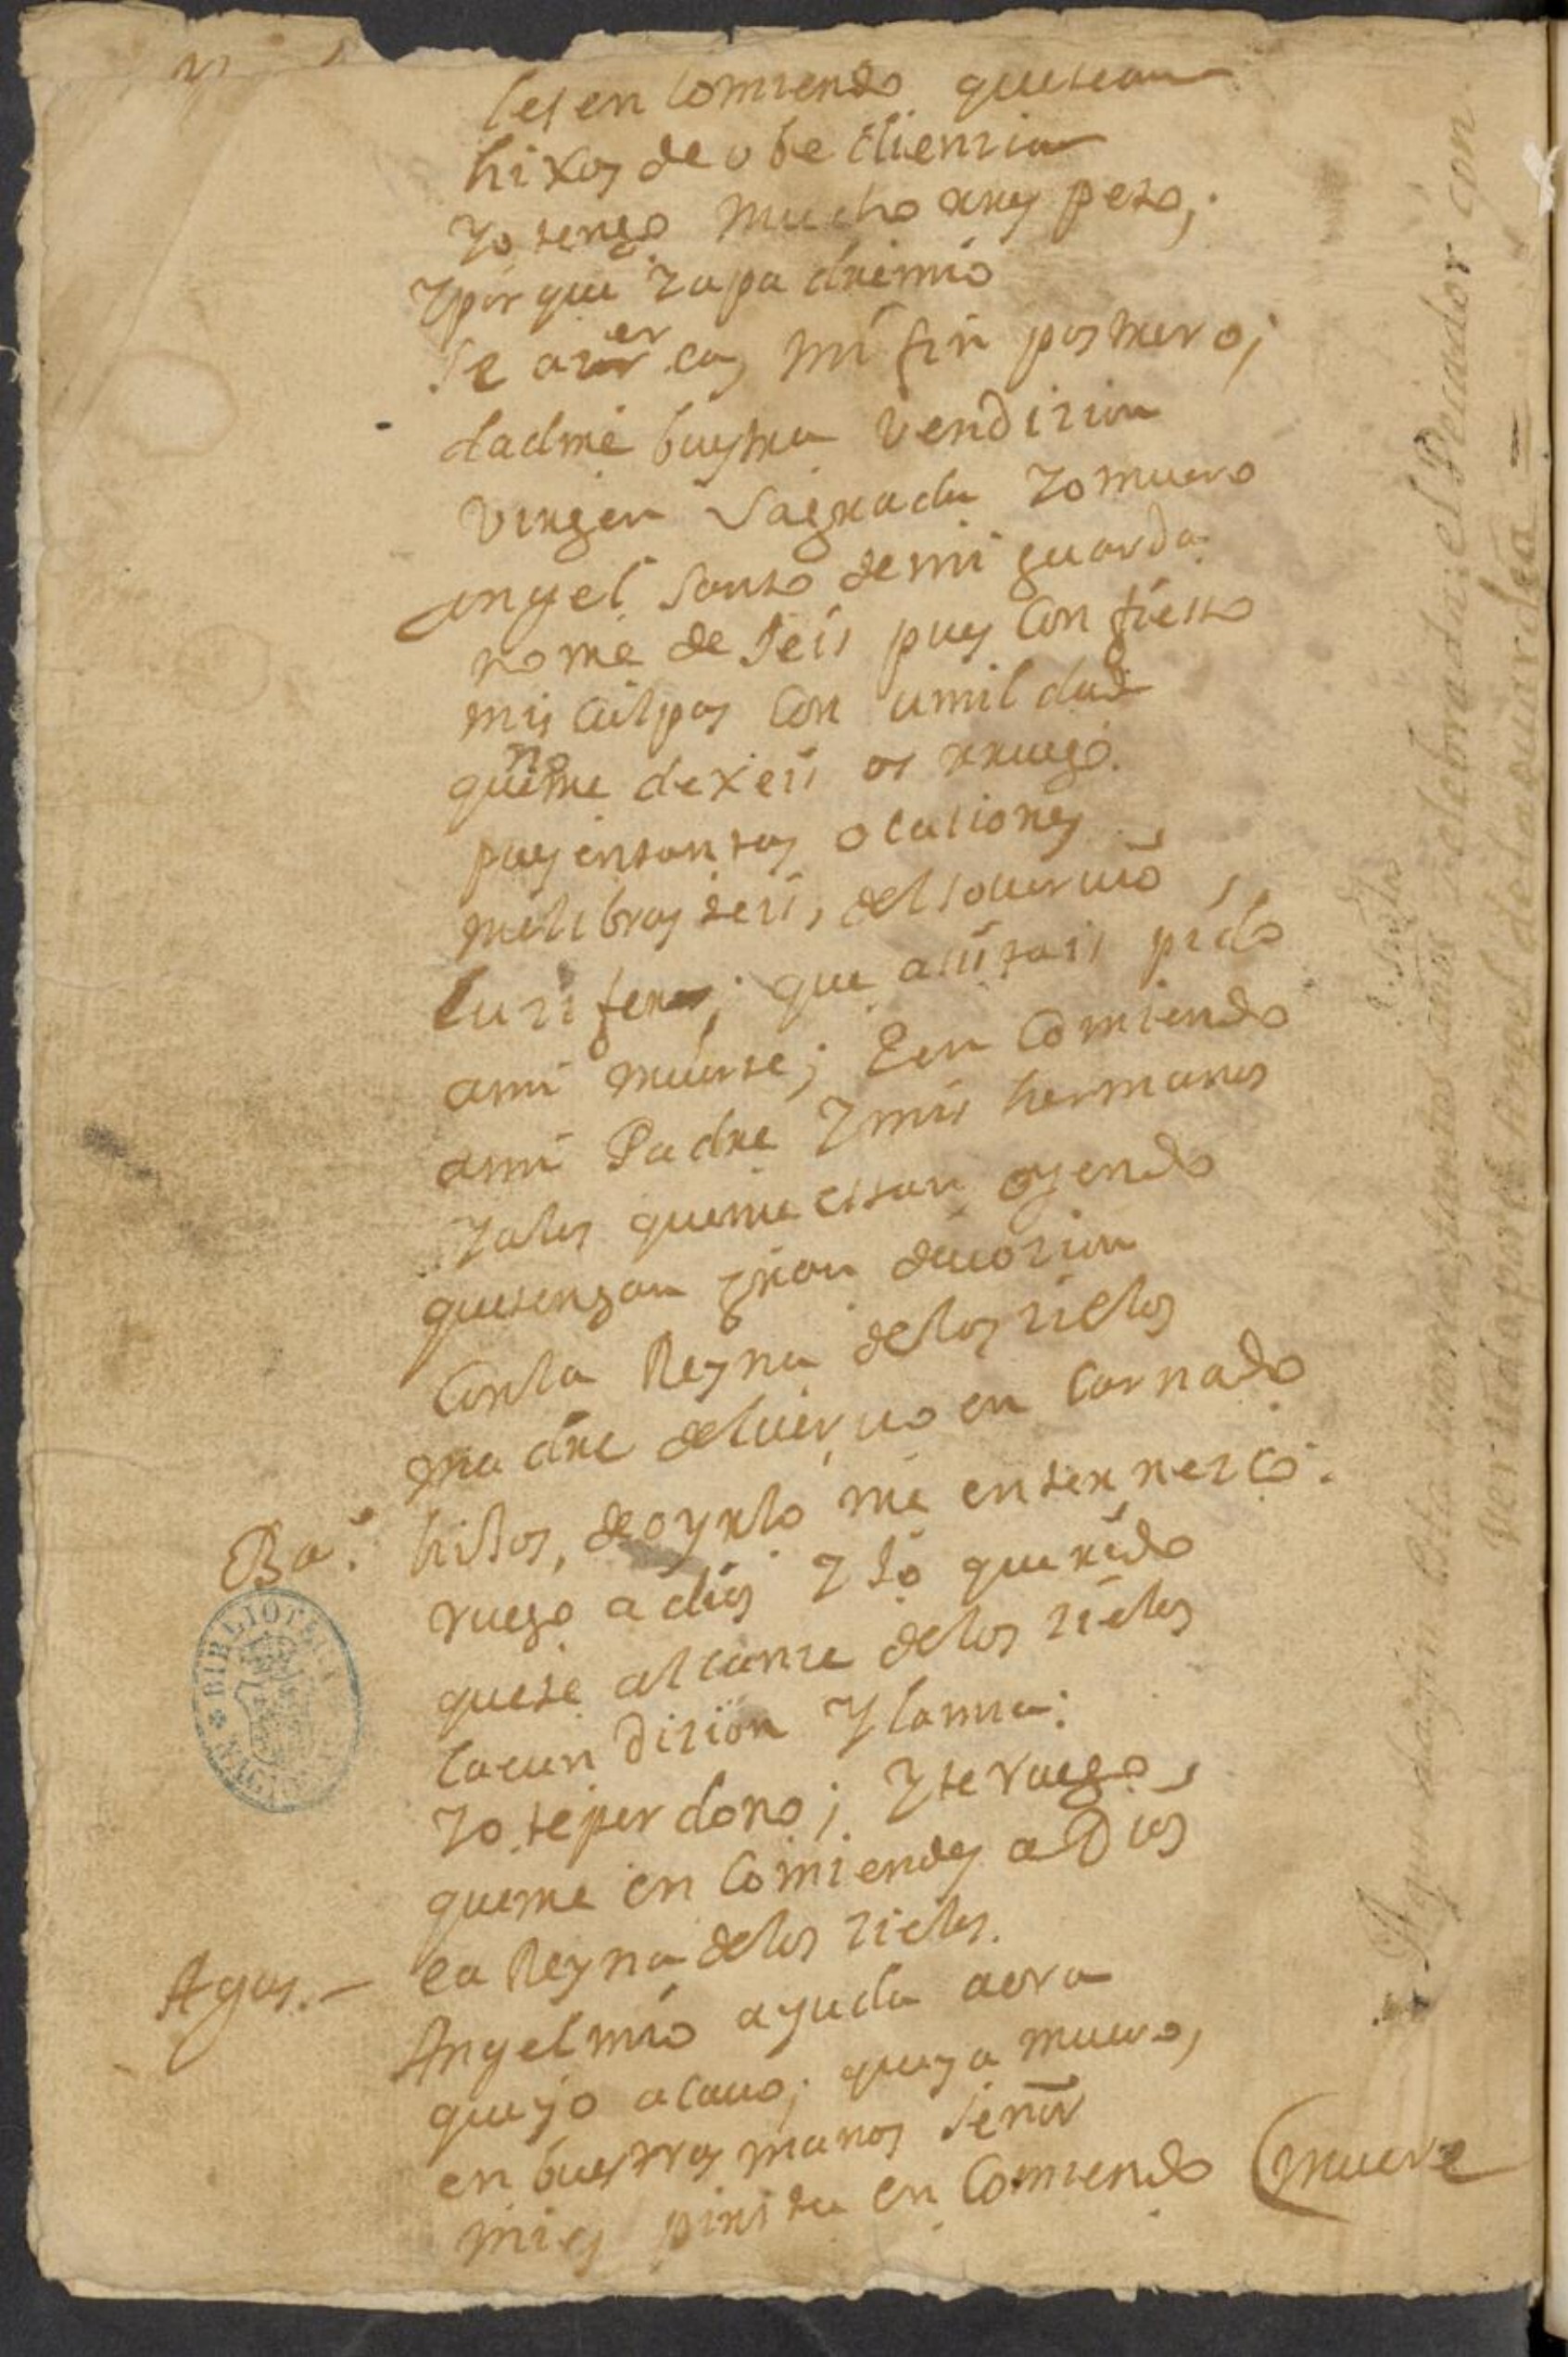 les encomiendo que sean
hixos de obediencia
Yo tengo mucho rrespeto,
Y por que Ya padre mio
se azercas mi fin postrero;
dadme buestra vendizion
Virgen Sagrada Yo muero
angel santo de mi guarda
no me dexeis pues confieso
mis culpas con umildad
que no me dexeis os rruego.
pues en tantas ocasiones
me librasteis, del soberuio
luzifer; que asistais pido
a mi muerte; Y encomiendo
a mi Padre Y mis hermanos
Y a los que me estan oyendo
que tengan gran deuozion
con la Reyna de los zielos
madre del ueruo encarnado
Ba.e hijos, de oyrlo me enternezco.
ruego a dios Yjo querido
que te alcanze de los zielos
la cundizion Y la mia:
Yo te perdono; Y te ruego,
que me encomiendes a Dios
Agus. – ea Reyna de los zielos.
Angel mio ayuda aora
que yo acauo; que ya muero,
en buestras manos señor
mi espiritu encomiendo (muere
BIBLIOTECA
Aqui el Pecador con